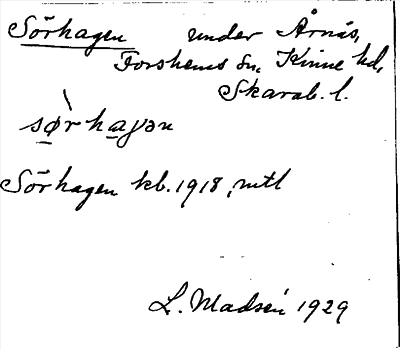 Sörhagen under Årnäs,
Forshems sn, Kinne hd,
Skarab. l.
sø̀rhaγən
Sörhagen kb. 1918, mtl
L. Madsén 1929